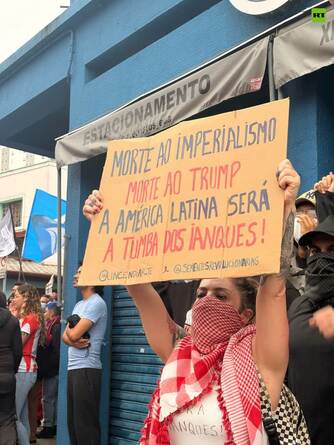 RT
ESTACIONAMENTO
MORTE AO IMPERIALISMO
MORTE AO TRUMP
A AMÉRICA LATINA SERÁ
A TUMBA DOS IANQUES!
@LINCENDIARTE & @SEMENTESREVOLUCIONARIAS